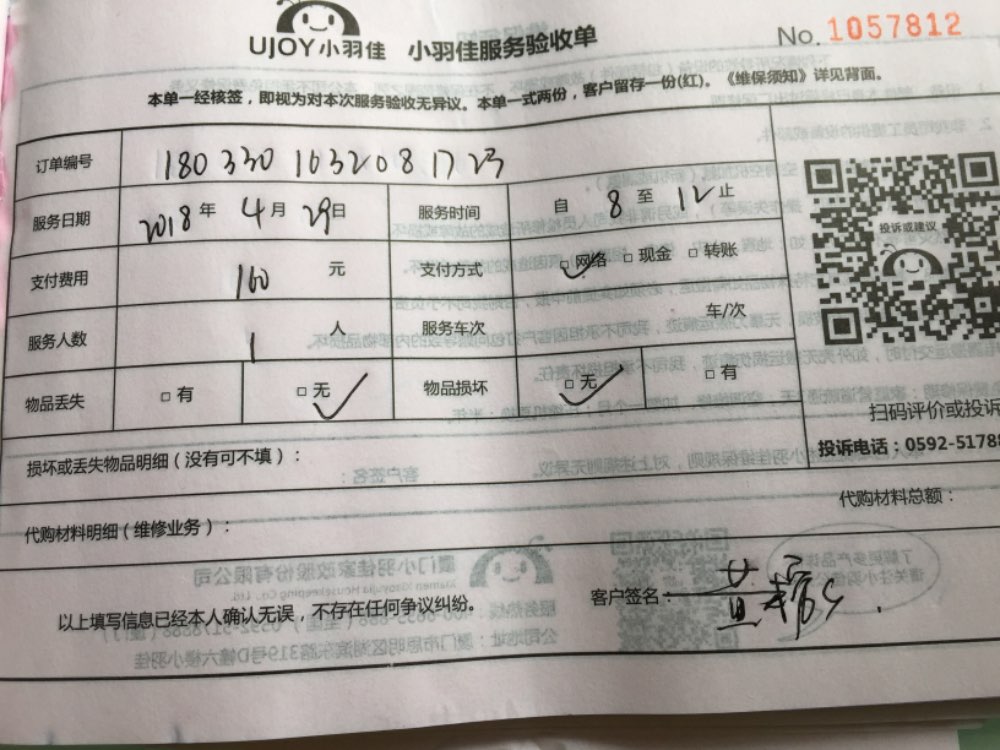 UJOY小羽佳 小羽佳服务验收单 No. 1057812
本单一经核签，即视为对本次服务验收无异议。本单一式两份，客户留存一份(红)。《维保须知》详见背面。
订单编号 1803301032081723
服务日期 2018年4月29日 服务时间 自8至12止
投诉或建议
支付费用 160元 支付方式 网络 现金 转账
服务人数 1人 服务车次 车/次
物品丢失 有 无 物品损坏 无 有
扫码评价或投诉
损坏或丢失物品明细（没有可不填）： 投诉电话：0592-5178
代购材料总额：
代购材料明细（维修业务）：
客户签名：
以上填写信息已经本人确认无误，不存在任何争议纠纷。